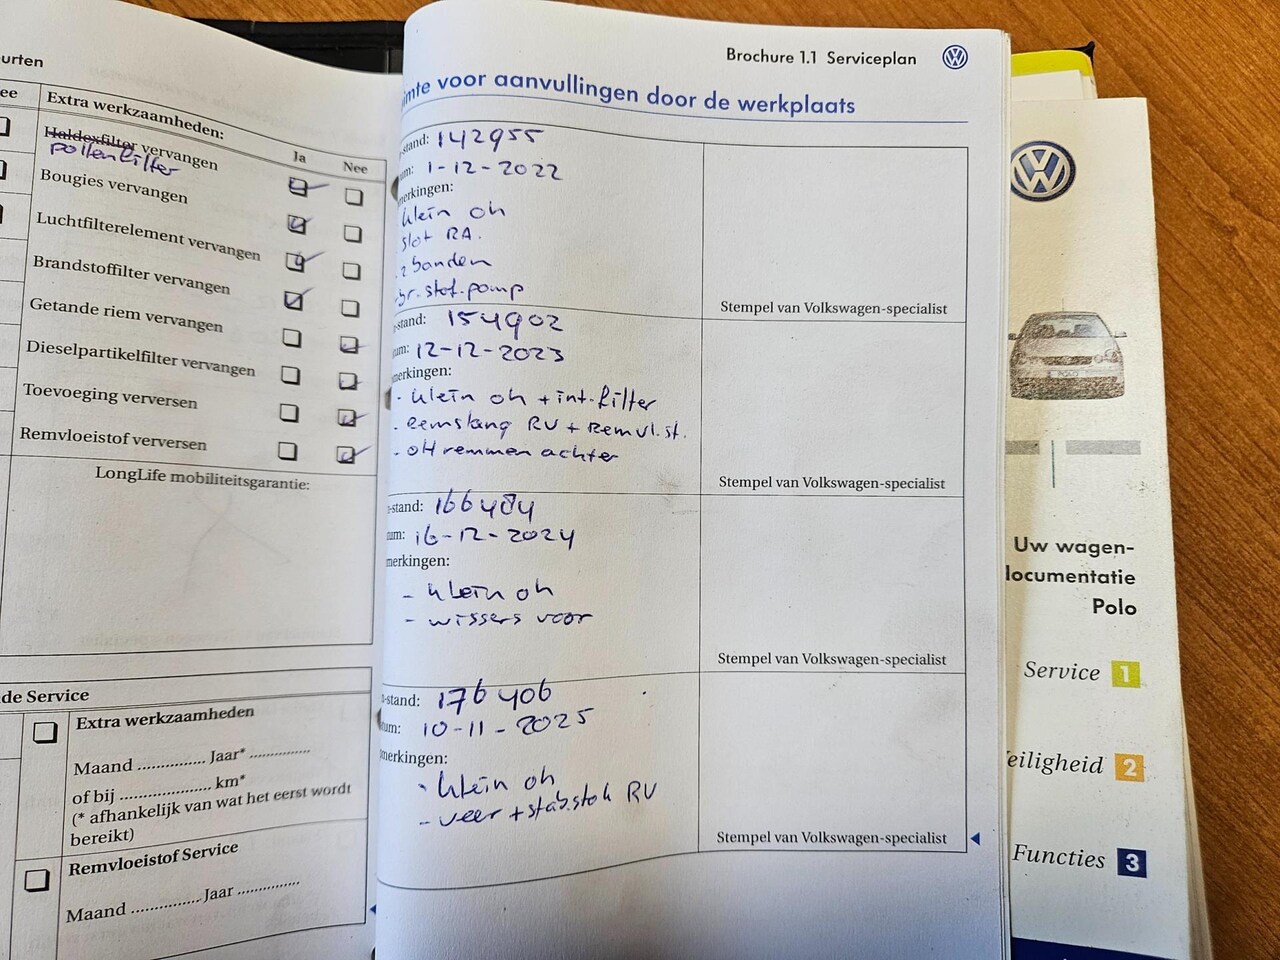 urten
ee
Extra werkzaamheden:
Ja
Nee
Haldexfilter vervangen
pollenfilter
Bougies vervangen
Luchtfilterelement vervangen
Brandstoffilter vervangen
Getande riem vervangen
Dieselpartikelfilter vervangen
Toevoeging verversen
Remvloeistof verversen
LongLife mobiliteitsgarantie:
de Service
Extra werkzaamheden
Maand ............... Jaar* ..............
of bij .................... km*
(* afhankelijk van wat het eerst wordt
bereikt)
Remvloeistof Service
Maand ............... Jaar ..............
Brochure 1.1 Serviceplan
imte voor aanvullingen door de werkplaats
-stand: 142955
um: 1-12-2022
merkingen:
klein oh
slot RA.
2 banden
br.stof.pomp
Stempel van Volkswagen-specialist
-stand: 154902
um: 12-12-2023
merkingen:
- klein oh + int.filter
- Remslang RV + Remvl.st.
- oH remmen achter
Stempel van Volkswagen-specialist
-stand: 166484
um: 16-12-2024
merkingen:
- klein oh
- wissers voor
Stempel van Volkswagen-specialist
-stand: 176406
um: 10-11-2025
merkingen:
- klein oh
- veer + stab.stok RV
Stempel van Volkswagen-specialist
POLO
Uw wagen-
documentatie
Polo
Service 1
eiligheid 2
Functies 3